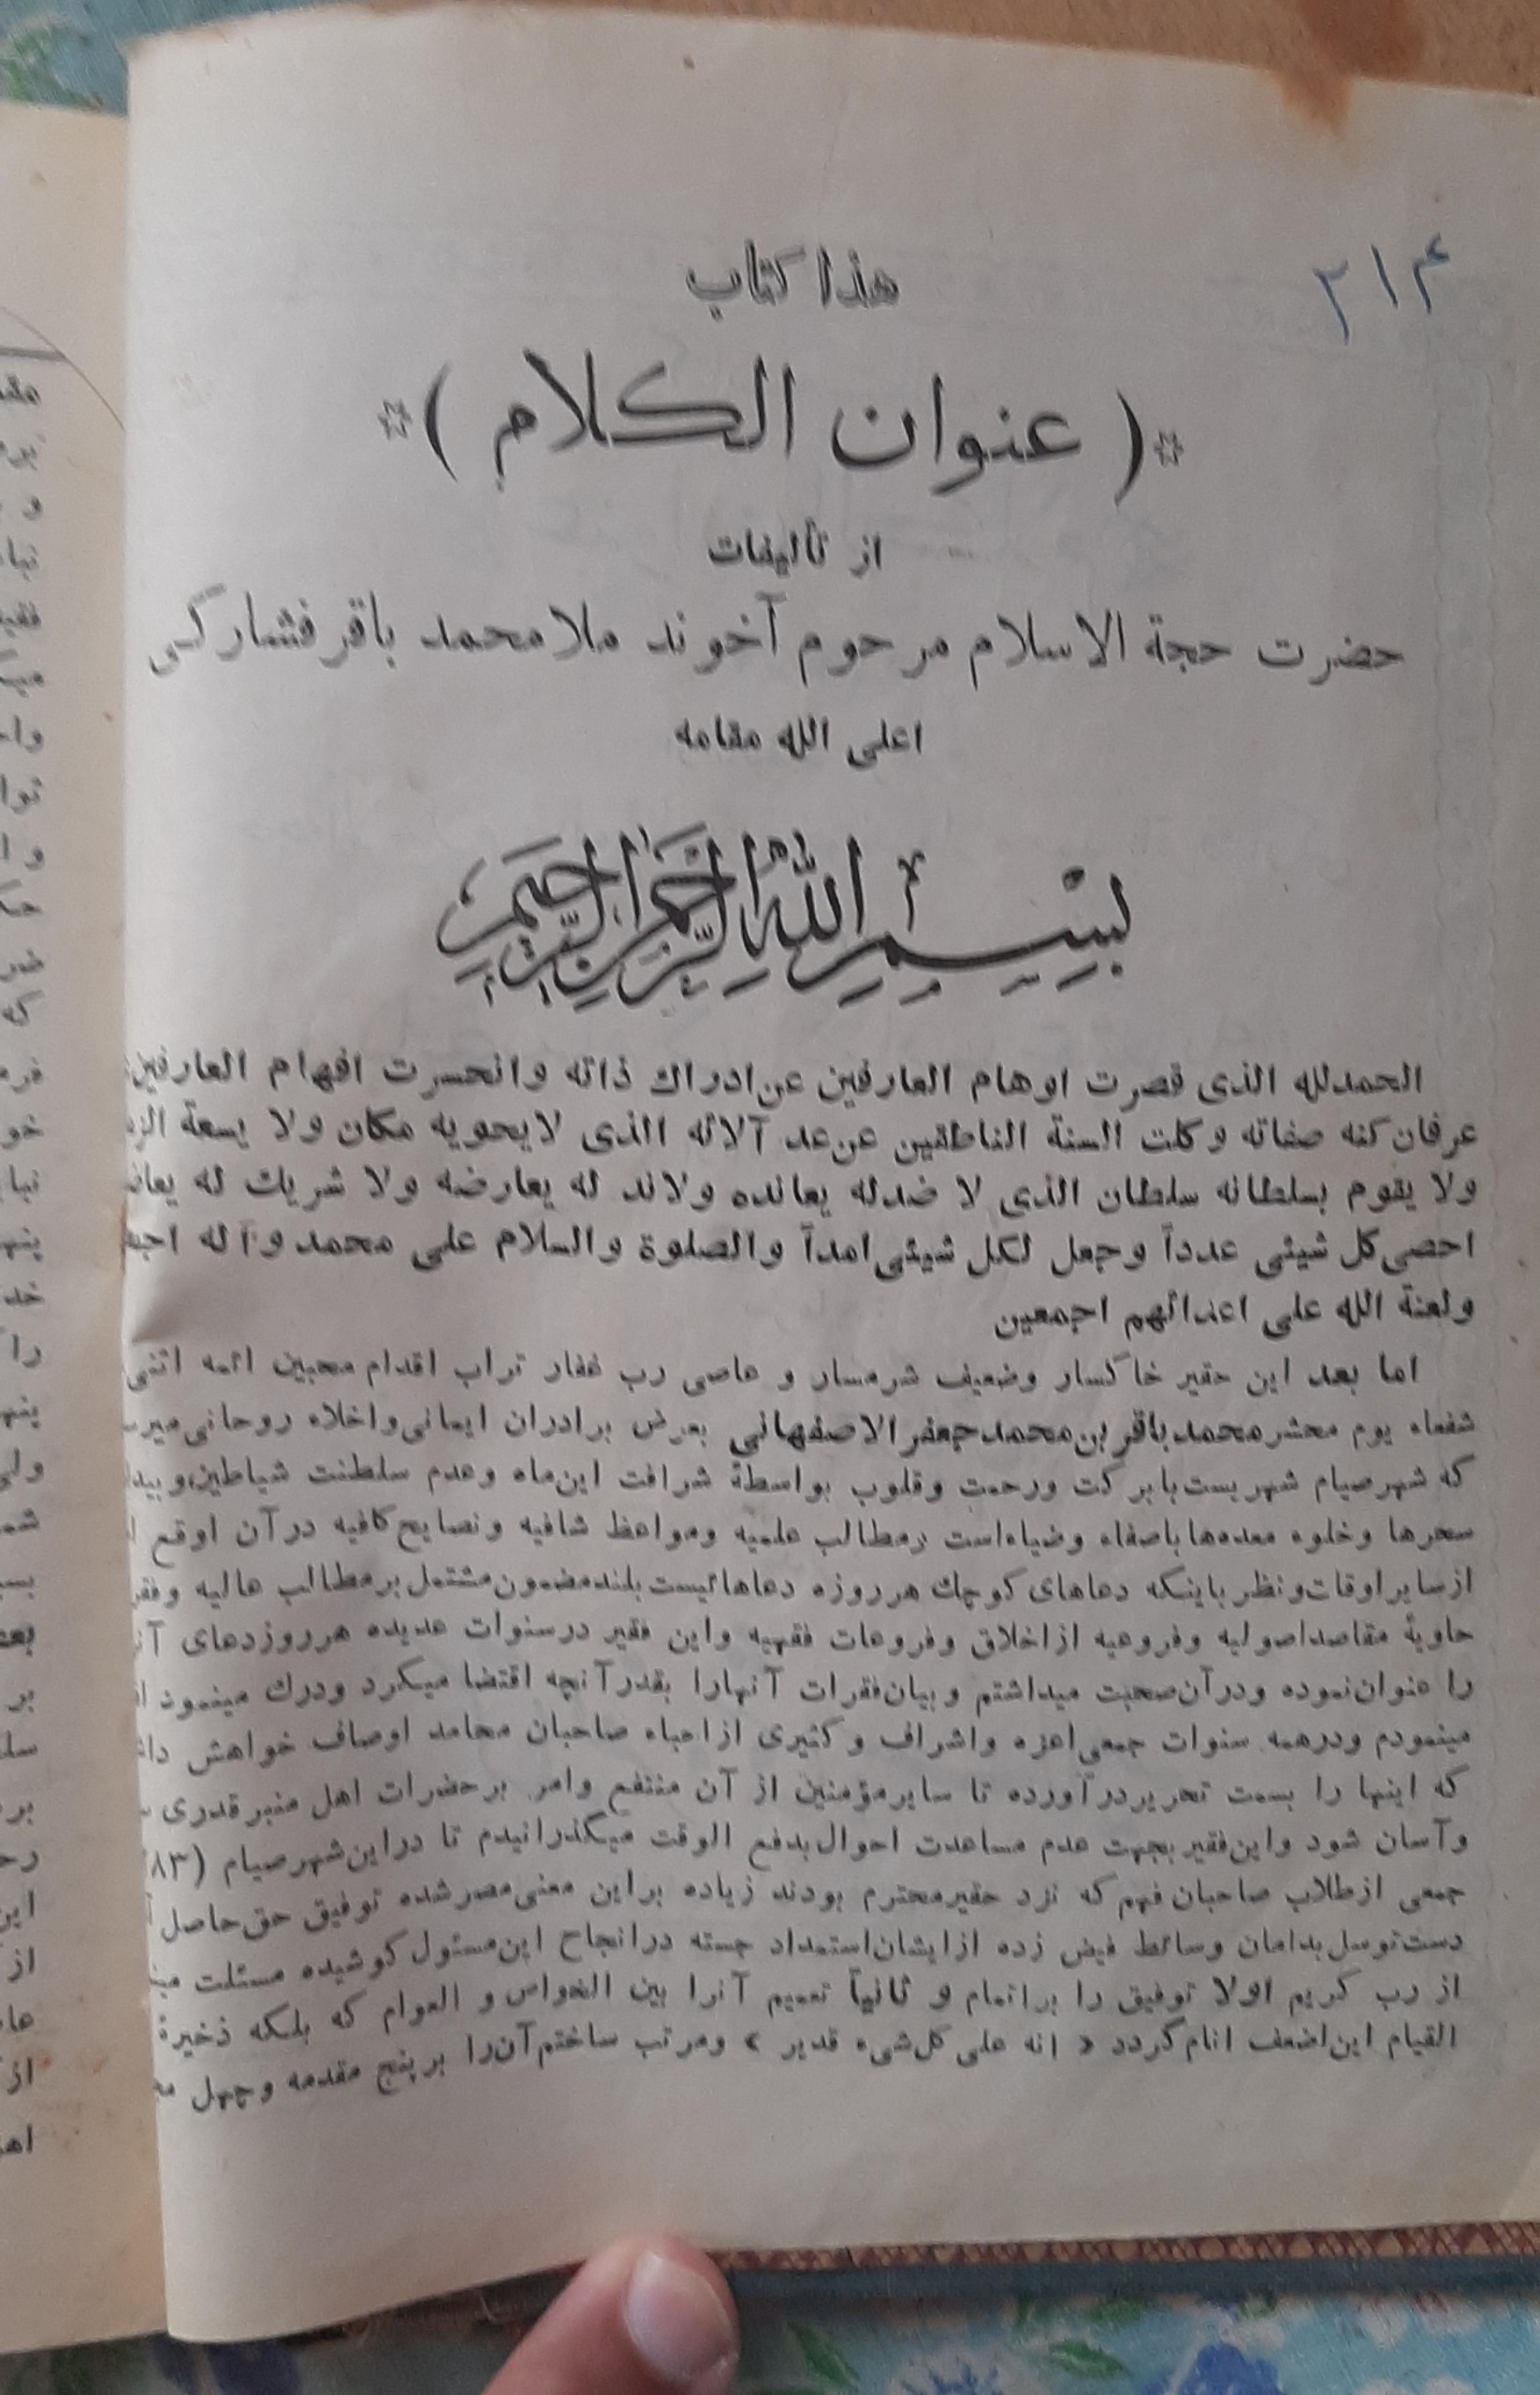 ۲۱۴
هذا کتاب
☆( عنوان الکلام )☆
از تألیفات
حضرت حجة الاسلام مرحوم آخوند ملا محمد باقر فشارکی
اعلی الله مقامه
بسم الله الرحمن الرحیم
الحمدلله الذی قصرت اوهام العارفین عن ادراك ذاته وانحسرت افهام العارفین
عرفان کنه صفاته وکلت السنة الناطقین عن عد آلائه الذی لایحویه مکان ولا یسعة
ولا یقوم بسلطانه سلطان الذی لا ضدله یعانده ولاند له یعارضه ولا شریك له
احصی کل شیئی عدداً وجعل لکل شیئی امداً والصلوة والسلام علی محمد وآله
ولعنة الله علی اعدائهم اجمعین
اما بعد این حقیر خاکسار وضعیف شرمسار و عاصی رب غفار تراب اقدام محبین ائمه اثنی
شفعاء یوم محشر محمد باقر بن محمد جعفر الاصفهانی بعرض برادران ایمانی واخلاء روحانی
که شهر صیام شهریست با برکت ورحمت وقلوب بواسطۀ شرافت این ماه وعدم سلطنت شیاطین
سحرها وخلوه معده‌ها باصفاء وضیاء است ومطالب علمیه ومواعظ شافیه ونصایح کافیه در آن اوقع
از سایر اوقات ونظر باینکه دعاهای کوچك هر روزه دعاهائیست بلند مضمون مشتمل بر مطالب عالیه
حاویۀ مقاصد اصولیه وفروعیه از اخلاق وفروعات فقهیه واین فقیر در سنوات عدیده هر روز دعای
را عنوان نموده ودر آن صحبت میداشتم وبیان فقرات آنها را بقدر آنچه اقتضا میکرد ودرك مینمود
مینمودم ودرهمه سنوات جمعی اعزه واشراف وکثیری از احباء صاحبان محامد اوصاف خواهش
که اینها را بسمت تحریر در آورده تا سایر مؤمنین از آن منتفع وامر بر حضرات اهل منبر قدری
وآسان شود واین فقیر بجهت عدم مساعدت احوال بدفع الوقت میگذرانیدم تا در این شهر صیام (۸۳
جمعی از طلاب صاحبان فهم که نزد حقیر محترم بودند زیاده بر این معنی مصر شده توفیق حق حاصل
دست توسل بدامان وسائط فیض زده از ایشان استمداد جسته در انجاح این مسئول کوشیده مسئلت
از رب کریم اولا توفیق را بر اتمام و ثانیاً تعمیم آنرا بین الخواص و العوام که بلکه ذخیرة
القیام این اضعف انام گردد « انه علی کل شیء قدیر » ومرتب ساختم آن را بر پنج مقدمه وچهل